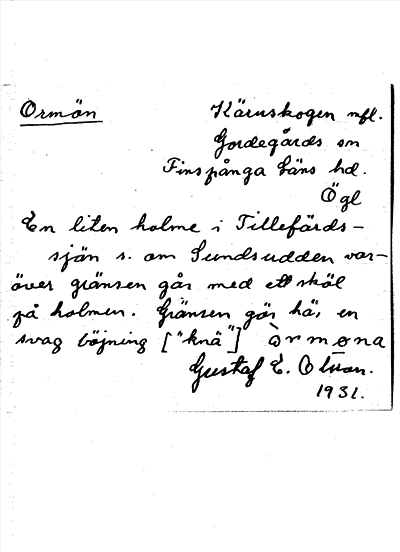 Ormön
Käruskogen nfl.
Godegårds sn
Finspånga läns hd.
Ögl
En liten holme i Tillefärds-
sjön s. om Sundsudden var-
över gränsen går med ett sköl
på holmen. Gränsen gör här en
svag böjning ["knä"] òrmøna
Gustaf E. Olsson.
1931.